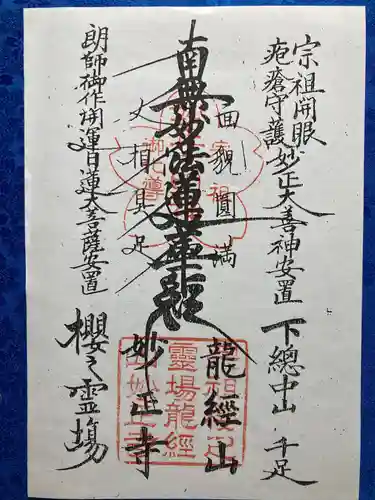 宗祖開眼
疱瘡守護妙正大善神安置
下總中山 千足
面貌圓満
龍經山
南無妙法蓮華経
妙正寺
人相具足
朗師御作開運日蓮大菩薩安置
櫻之霊場
靈場龍經